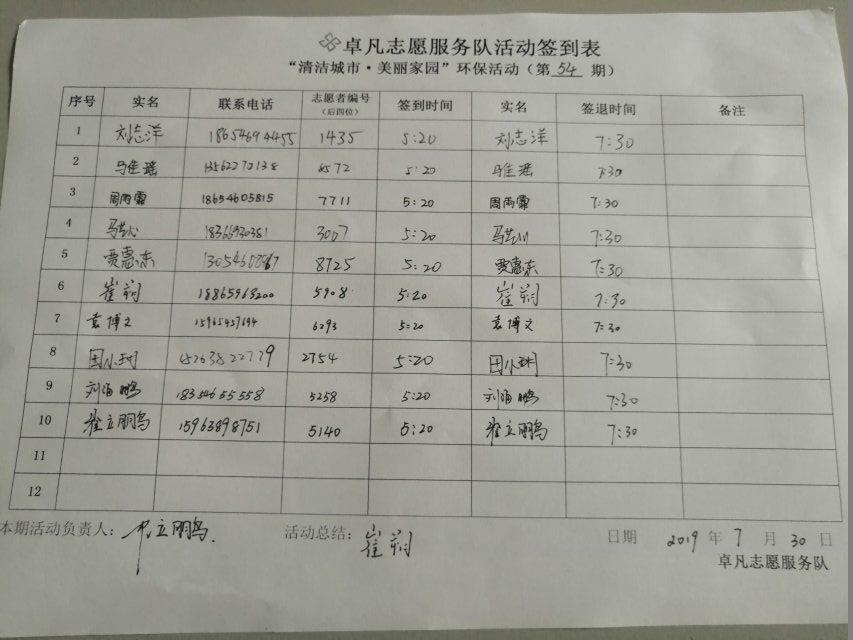 卓凡志愿服务队活动签到表
“清洁城市·美丽家园”环保活动（第 54 期）
序号 实名 联系电话 志愿者编号（后四位） 签到时间 实名 签退时间 备注
1 刘志洋 18654694455 1435 5:20 刘志洋 7:30
2 马佳瑶 13562270138 8572 5:20 马佳瑶 7:30
3 周雨霏 18654605815 7711 5:20 周雨霏 7:30
4 18366920381 3007 5:20 7:30
5 贾惠东 8725 5:20 贾惠东 7:30
6 崔莉 18865963200 5908 5:20 崔莉 7:30
7 袁博文 15965427694 6293 5:20 袁博文 7:30
8 田小珂 15263822779 2754 5:20 田小珂 7:30
9 刘海鹏 18354655558 5258 5:20 刘海鹏 7:30
10 翟立鹏 15963898751 5140 5:20 翟立鹏 7:30
11
12
本期活动负责人： 立鹏 活动总结：崔莉 日期 2019 年 7 月 30 日
卓凡志愿服务队